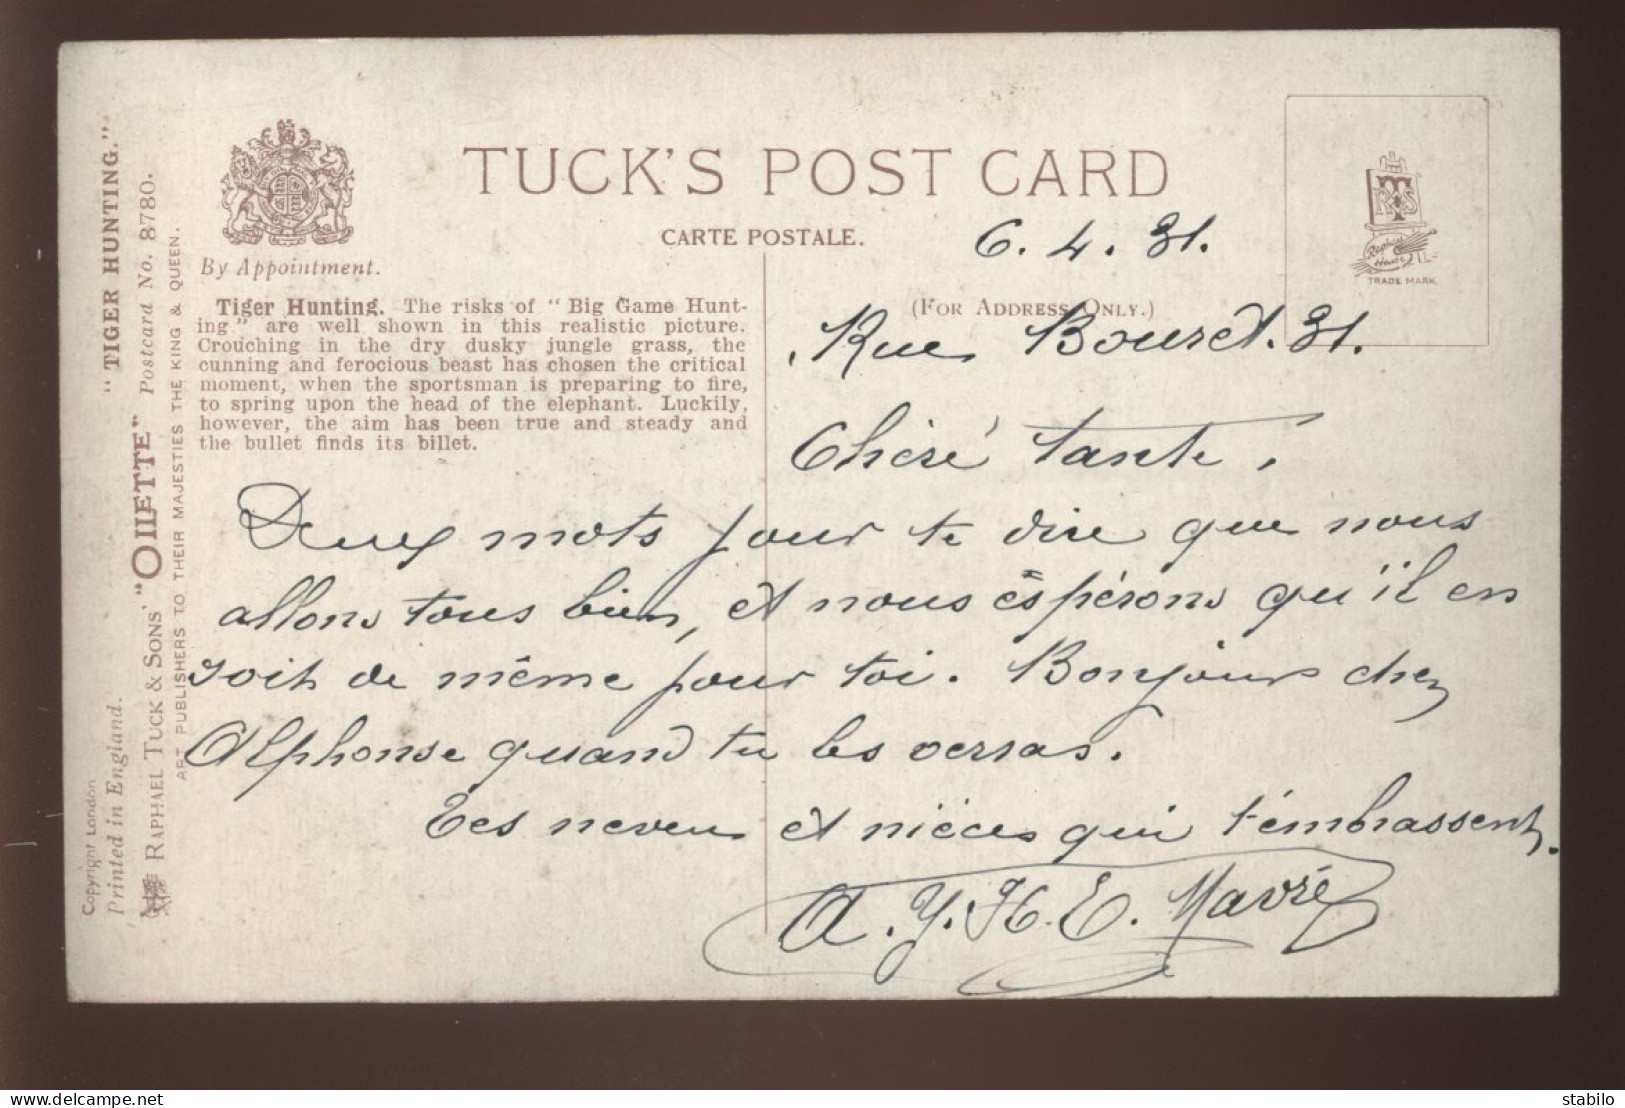 TUCK'S POST CARD
CARTE POSTALE.
(FOR ADDRESS ONLY.)
By Appointment.
TRADE MARK
Tiger Hunting. The risks of "Big Game Hunt-
ing" are well shown in this realistic picture.
Crouching in the dry dusky jungle grass, the
cunning and ferocious beast has chosen the critical
moment, when the sportsman is preparing to fire,
to spring upon the head of the elephant. Luckily,
however, the aim has been true and steady and
the bullet finds its billet.
"TIGER HUNTING."
Postcard No. 8780.
RAPHAEL TUCK & SONS' "OILETTE"
ART PUBLISHERS TO THEIR MAJESTIES THE KING & QUEEN.
Copyright London
Printed in England.
6. 4. 31.
Rue Bouret. 31.
Chère tante,
Deux mots pour te dire que nous
allons tous bien, et nous éspérons qu'il en
soit de même pour toi. Bonjour chez
Alphonse quand tu les verras.
Tes neveu et nièces qui t'embrassent.
A. Y. H. E. Mavré
stabilo